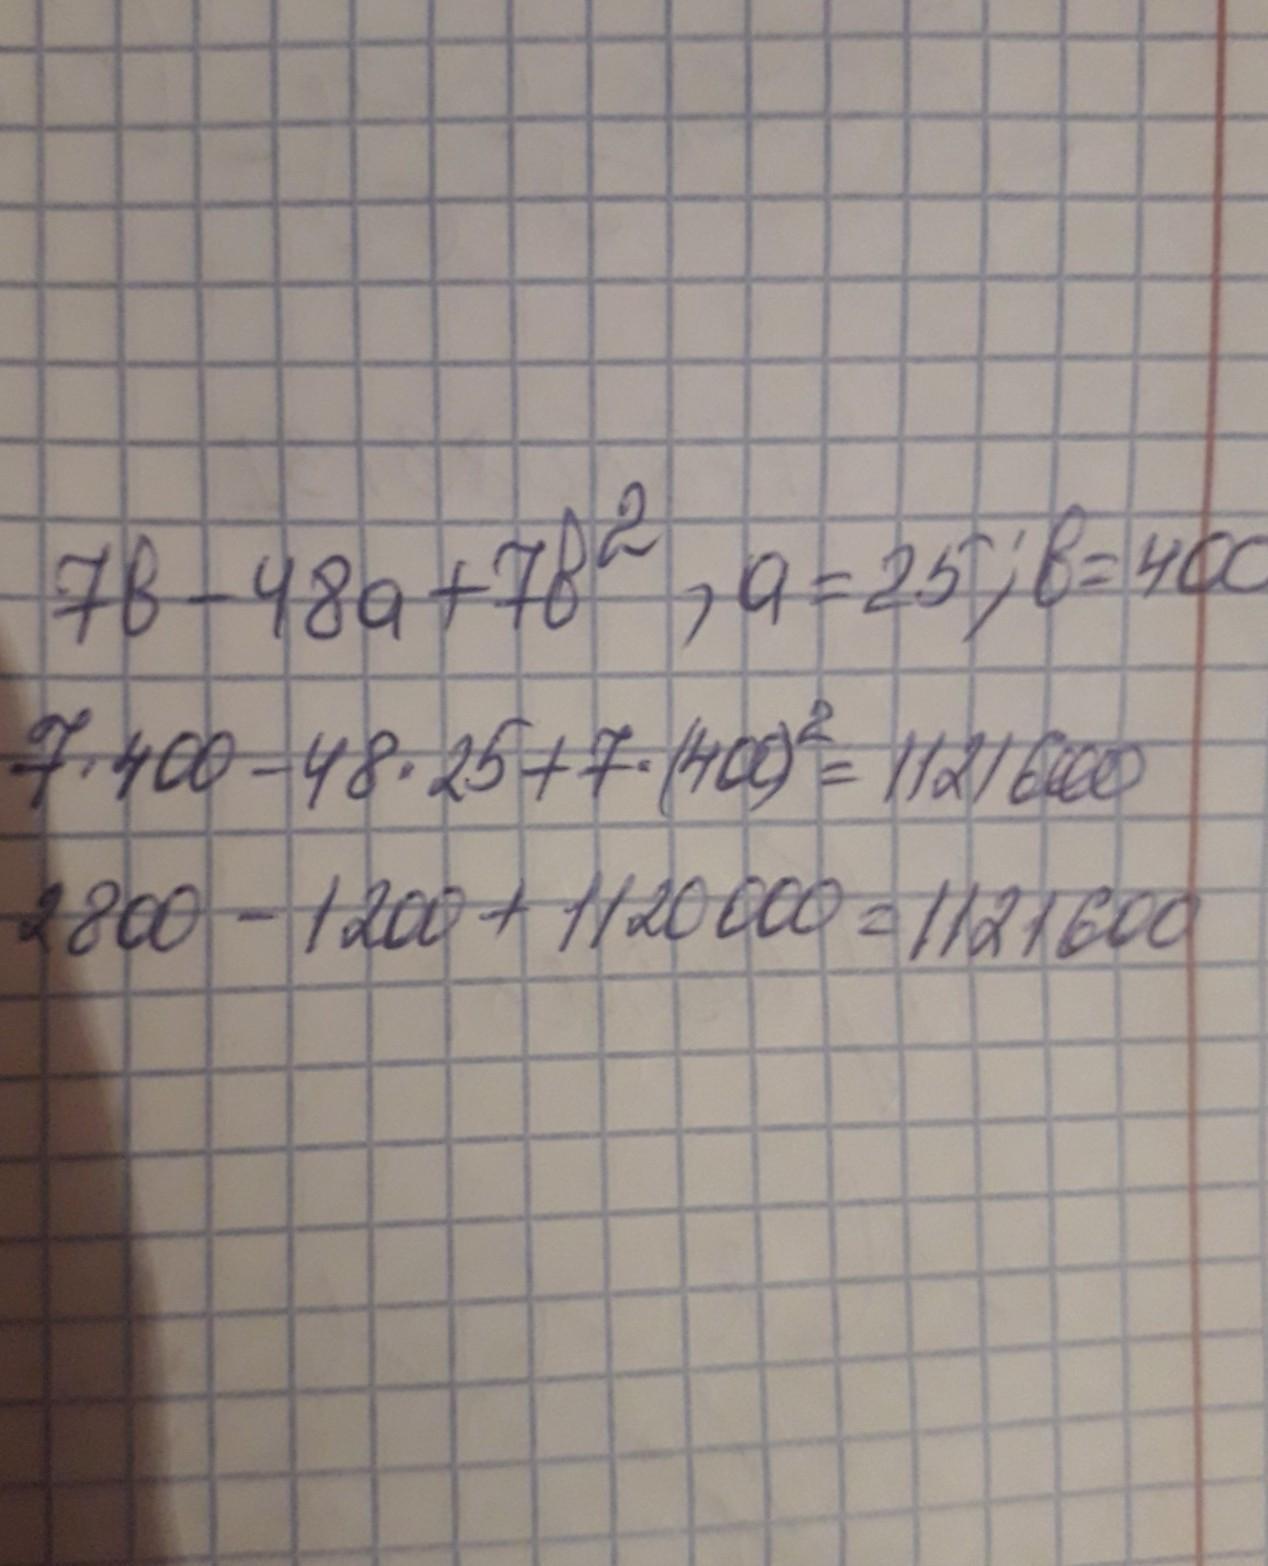 7в - 48а + 7в², а = 25; в = 400
7·400 - 48·25 + 7·(400)² = 1121600
2800 - 1200 + 1120000 = 1121600